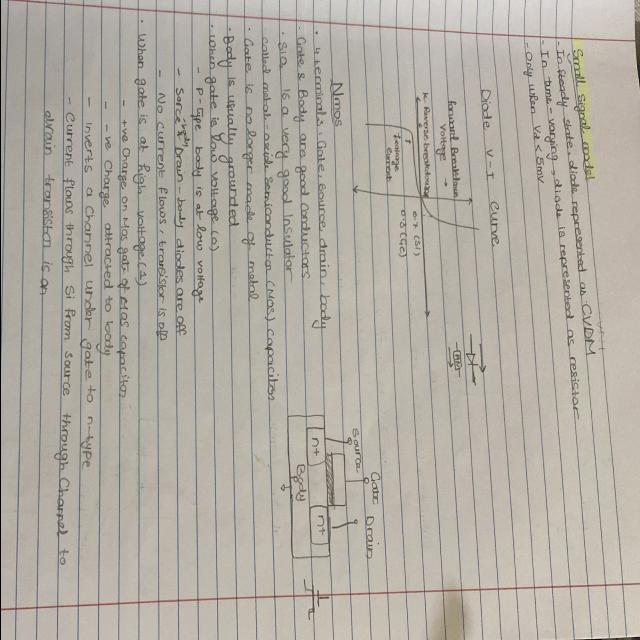 Small signal model
- In steady state, diode represented as CVDM
- In time-varying, diode is represented as resistor
- Only when Vd < 5mV
Diode V-I Curve
Forward Breakdown
Voltage
0.7 (Si)
0.3 (Ge)
Reverse breakdown
Leakage
current
Nmos
• 4 terminals: Gate, source, drain, body
• Gate & Body are good conductors
• SiO2 is a very good insulator
called metal-oxide semiconductor (MOS) capacitor
• Gate is no longer made of metal
• Body is usually grounded
• When gate is at low voltage (0)
- P-type body is at low voltage
- Source & drain-body diodes are off
- No current flows, transistor is off
• When gate is at high voltage (1)
- +ve charge on Mos gate of MOS capacitor
- -ve charge attracted to body
- Inverts a channel under gate to n-type
- Current flows through Si from source through channel to
drain transistor is on
Gate
Source
Drain
n+
n+
Body